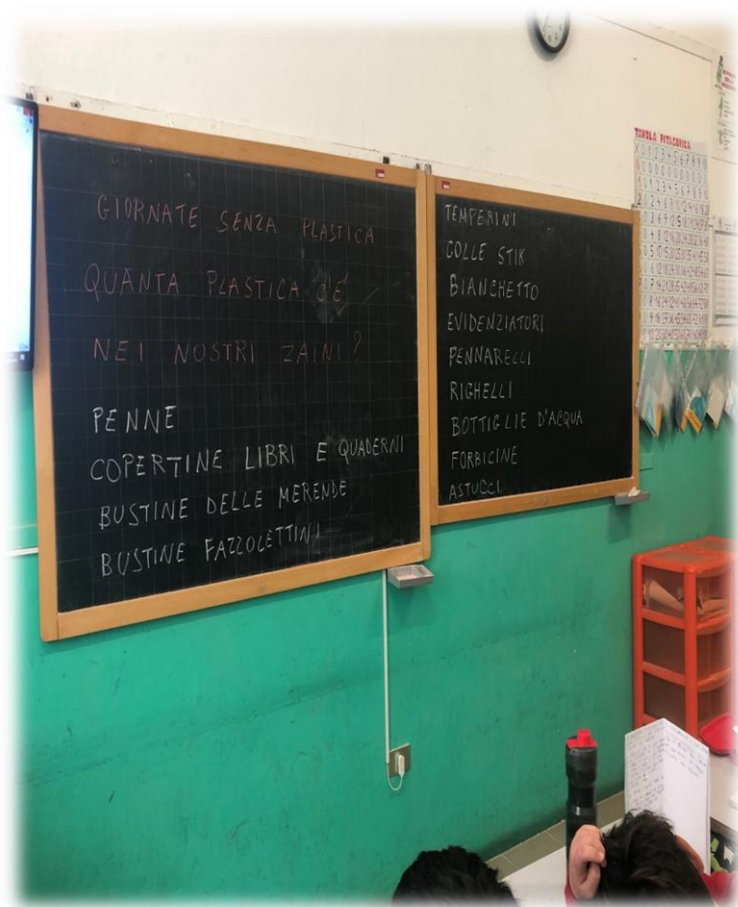 GIORNATE SENZA PLASTICA
QUANTA PLASTICA C'E'
NEI NOSTRI ZAINI?
PENNE
COPERTINE LIBRI E QUADERNI
BUSTINE DELLE MERENDE
BUSTINE FAZZOLETTINI
TEMPERINI
COLLE STIK
BIANCHETTO
EVIDENZIATORI
PENNARELLI
RIGHELLI
BOTTIGLIE D'ACQUA
FORBICINE
ASTUCCI
TAVOLA PITAGORICA